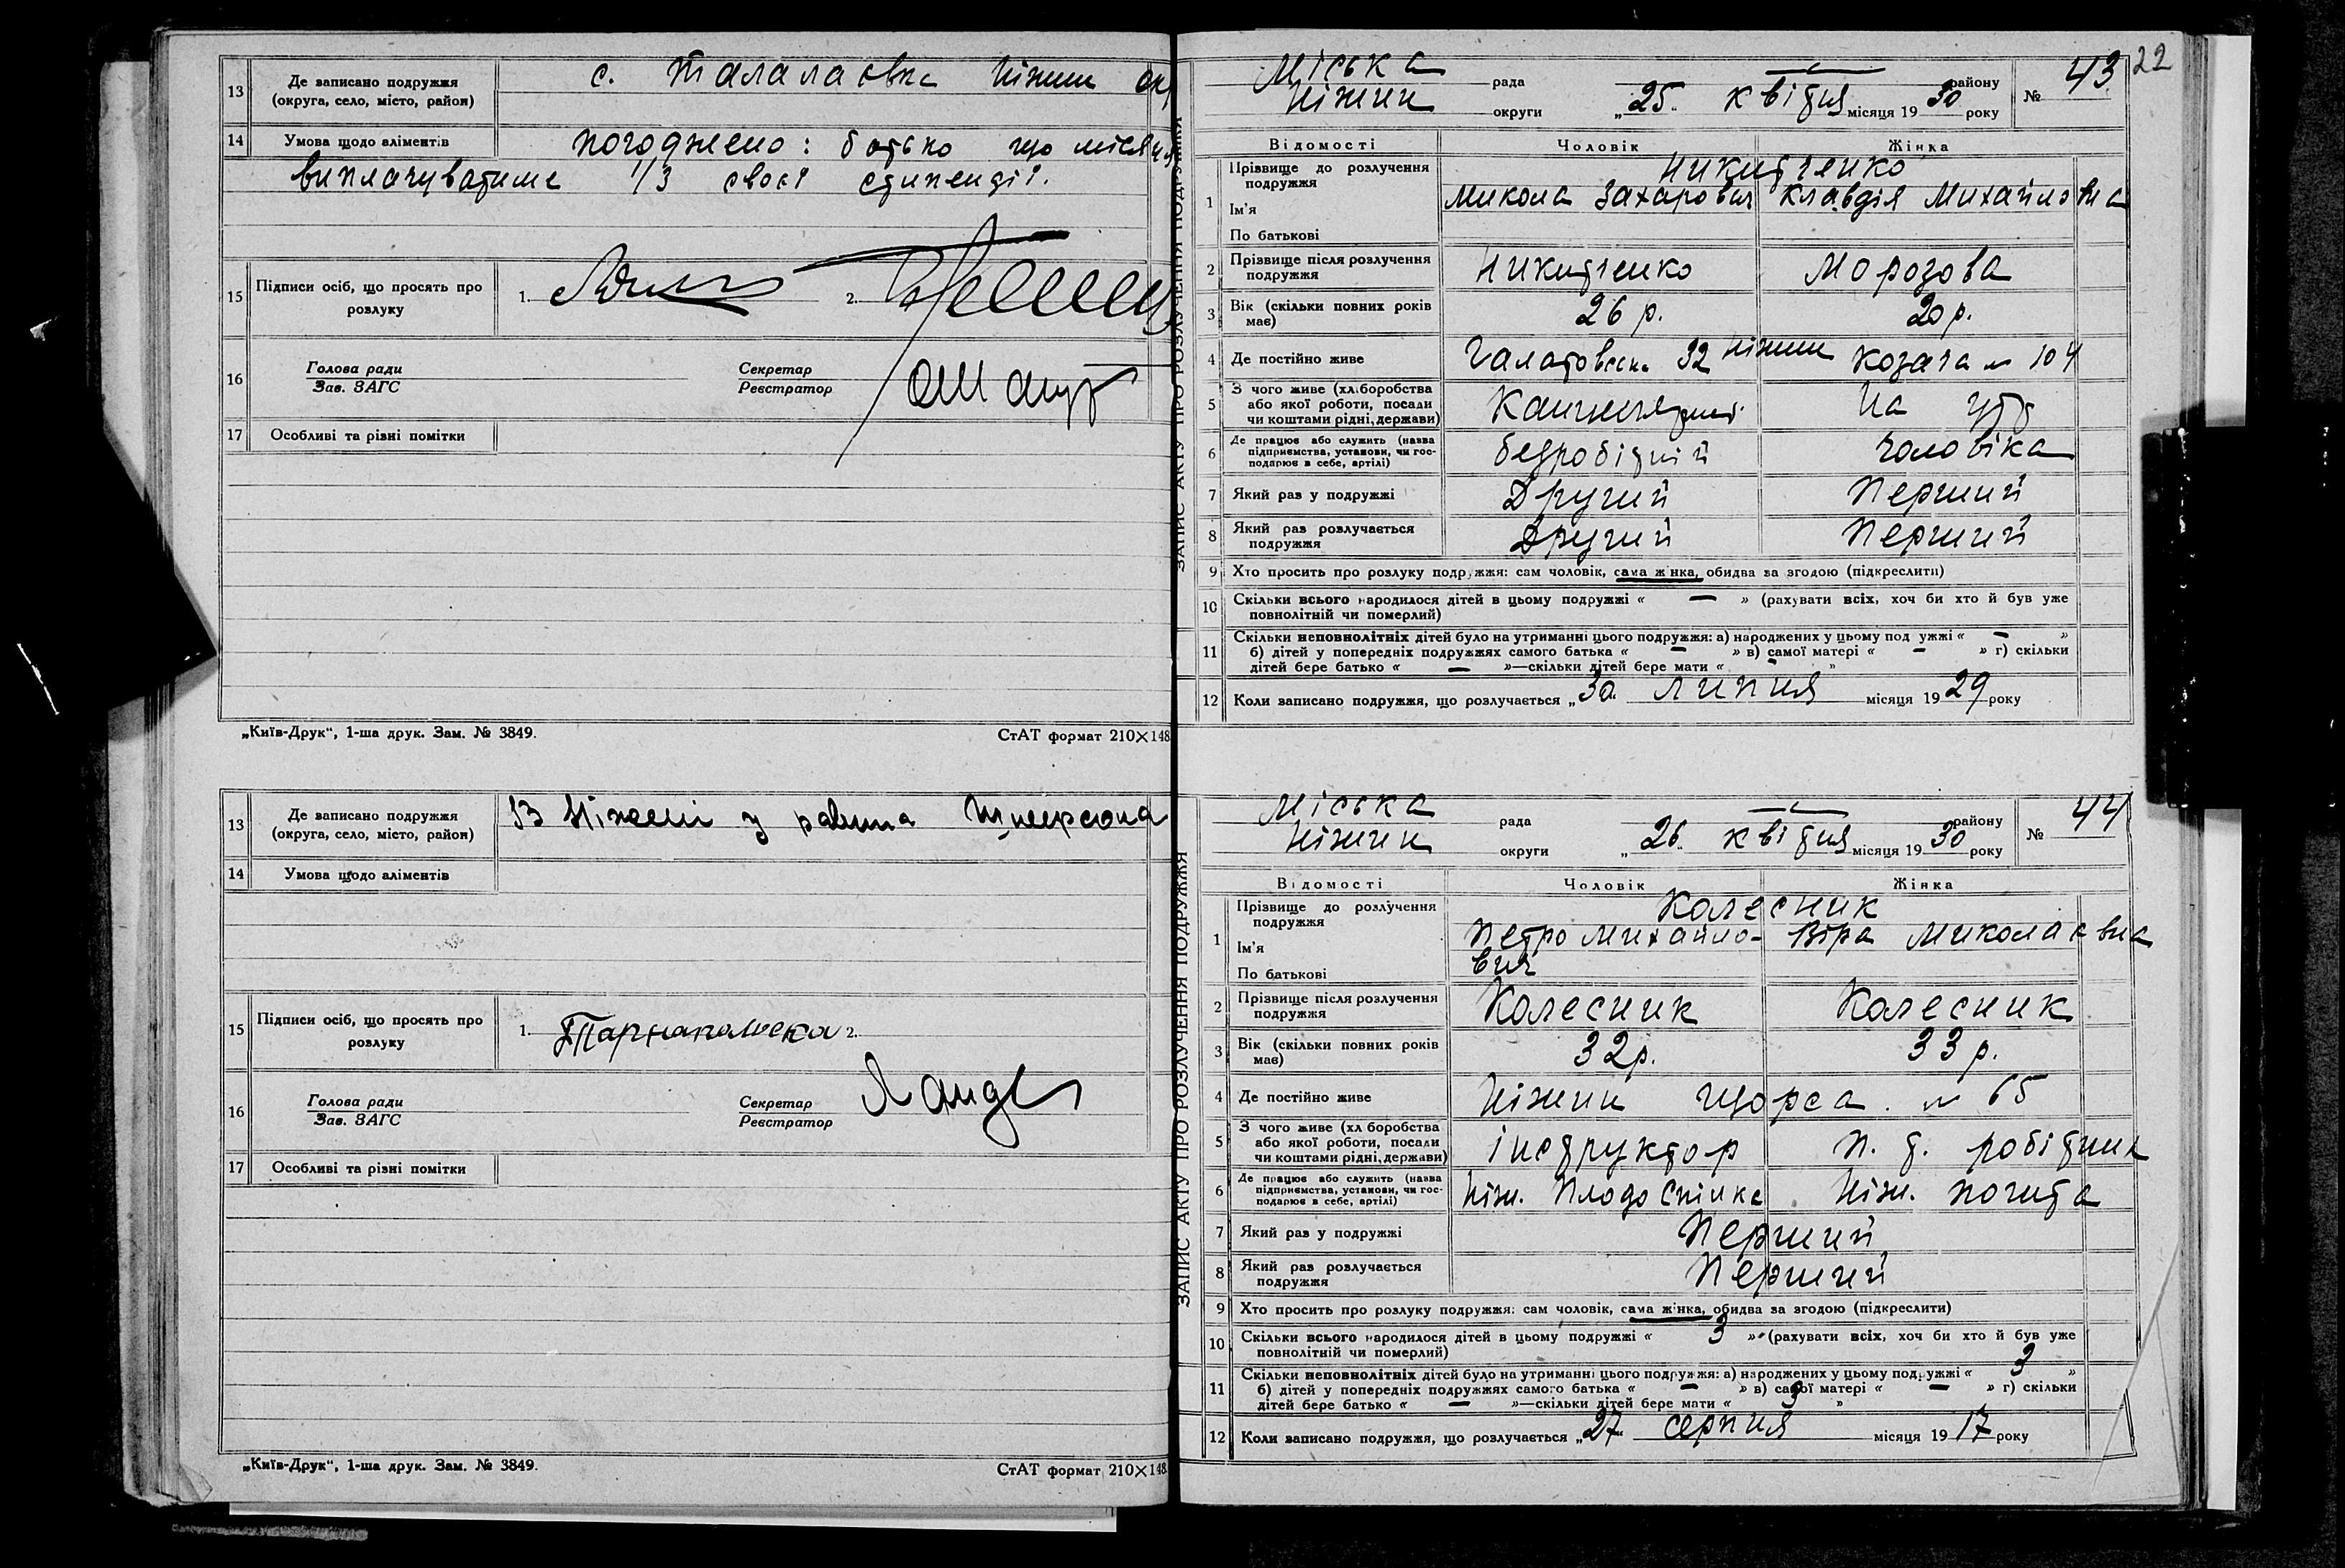 13 Де записано подружжя (округа, село, місто, район) с. Талалаївка Ніжин окр
14 Умова щодо аліментів погоджено: батько що місяця
виплачуватиме 1/3 своєї стипендії.
15 Підписи осіб, що просять про розлуку 1. 2.
16 Голова ради Зав. ЗАГС Секретар Реєстратор
17 Особливі та різні помітки
„Київ-Друк“, 1-ша друк. Зам. № 3849. СтАТ формат 210×148
13 Де записано подружжя (округа, село, місто, район) В Ніжені у равина
14 Умова щодо аліментів
15 Підписи осіб, що просять про розлуку 1. Тарнапольска 2.
16 Голова ради Зав. ЗАГС Секретар Реєстратор
17 Особливі та різні помітки
„Київ-Друк“, 1-ша друк. Зам. № 3849. СтАТ формат 210×148
22
ЗАПИС АКТУ ПРО РОЗЛУЧЕННЯ ПОДРУЖЖЯ
Міська рада — району № 43
Ніжин округи „25“ квітня місяця 1930 року
Відомості Чоловік Жінка
1 Прізвище до розлучення подружжя Никитченко
Ім'я Микола Захарович Клавдія Михайловна
По батькові
2 Прізвище після розлучення подружжя Никитченко Морозова
3 Вік (скільки повних років має) 26 р. 20 р.
4 Де постійно живе 32 Ніжин Козача № 104
5 З чого живе (хліборобства або якої роботи, посади чи коштами рідні, держави) На утр
6 Де працює або служить (назва підприємства, установи, чи господарює в себе, артілі) безробітній чоловіка
7 Який раз у подружжі Другий Перший
8 Який раз розлучається подружжя Другий Перший
9 Хто просить про розлуку подружжя: сам чоловік, сама жінка, обидва за згодою (підкреслити)
10 Скільки всього народилося дітей в цьому подружжі « — » (рахувати всіх, хоч би хто й був уже
повнолітній чи померлий)
11 Скільки неповнолітніх дітей було на утриманні цього подружжя: а) народжених у цьому подружжі « — »
б) дітей у попередніх подружжях самого батька « — » в) самої матері « — » г) скільки
дітей бере батько « — »—скільки дітей бере мати « — »
12 Коли записано подружжя, що розлучається „30“ липня місяця 1929 року
ЗАПИС АКТУ ПРО РОЗЛУЧЕННЯ ПОДРУЖЖЯ
Міська рада — району № 44
Ніжин округи „26“ квітня місяця 1930 року
Відомості Чоловік Жінка
1 Прізвище до розлучення подружжя Колесник
Ім'я Петро Михайло- Віра Миколаєвна
По батькові вич
2 Прізвище після розлучення подружжя Колесник Колесник
3 Вік (скільки повних років має) 32 р. 33 р.
4 Де постійно живе Ніжин Щорса № 65
5 З чого живе (хліборобства або якої роботи, посади чи коштами рідні, держави) інструктор п. т. робітник
6 Де працює або служить (назва підприємства, установи, чи господарює в себе, артілі) Ніж. Плодоспілка Ніж. почита
7 Який раз у подружжі Перший
8 Який раз розлучається подружжя Перший
9 Хто просить про розлуку подружжя: сам чоловік, сама жінка, обидва за згодою (підкреслити)
10 Скільки всього народилося дітей в цьому подружжі « 3 » (рахувати всіх, хоч би хто й був уже
повнолітній чи померлий)
11 Скільки неповнолітніх дітей було на утриманні цього подружжя: а) народжених у цьому подружжі « 3 »
б) дітей у попередніх подружжях самого батька « — » в) самої матері « — » г) скільки
дітей бере батько « — »—скільки дітей бере мати « 3 »
12 Коли записано подружжя, що розлучається „27“ серпня місяця 1917 року